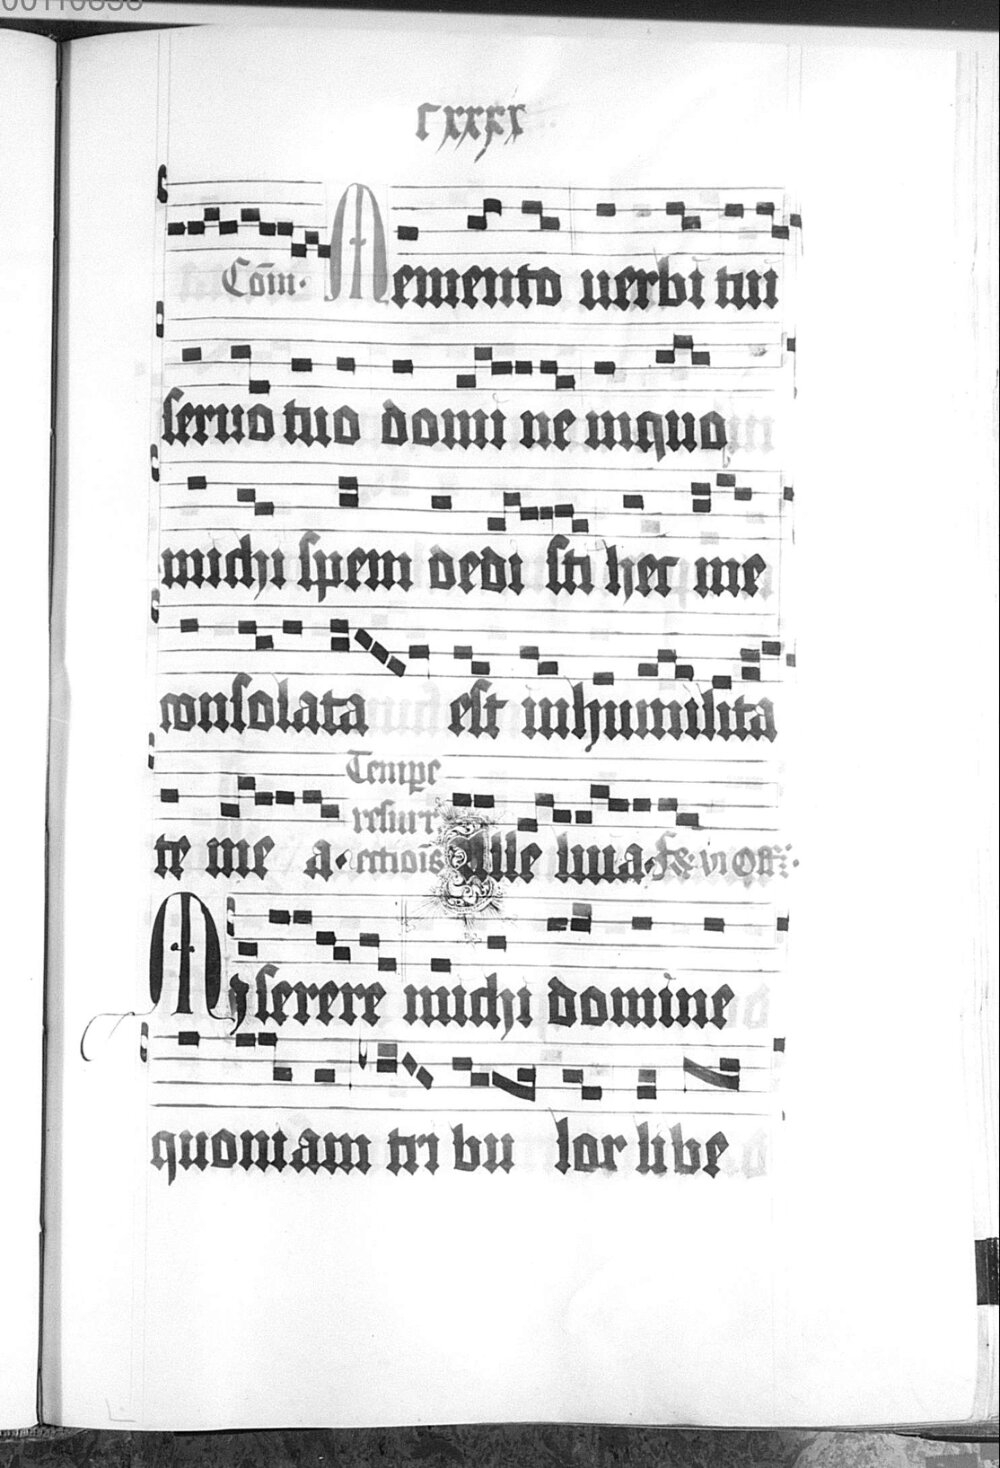 cxxxx
Com̄. Memento uerbi tui
seruo tuo domi ne inquo
michi spem dedi sti hec me
consolata est inhumilita
te me a. Tempe resurr ectiois Alle luia. f̄& vi Off̄.
Miserere michi domine
quoniam tri bu lor libe